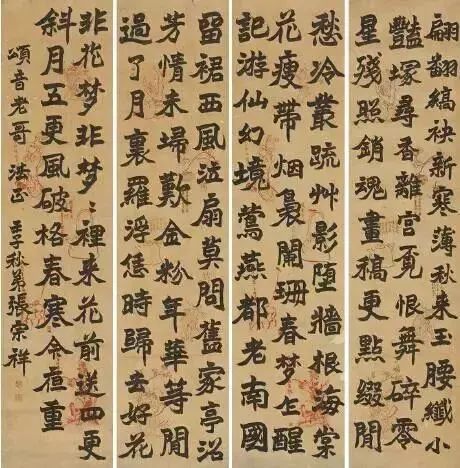 翩翻縞袂新寒薄秋来玉腰纖小
豔塚尋香離宫覓恨舞碎零
星殘照銷魂畫稿更點綴閒
愁冷叢疏艸影墮牆根海棠
花瘦帶烟裊闌珊春夢乍醒
記游仙幻境鶯燕都老南國
留裙西風泣扇莫問舊家亭沼
芳情未埽歎金粉年華等閒
過了月裏羅浮恁時歸去好花
非花梦非梦〻裡来花前送四更
斜月五更風破格春寒令重
頌音老哥 法正 壬子秋弟張宗祥